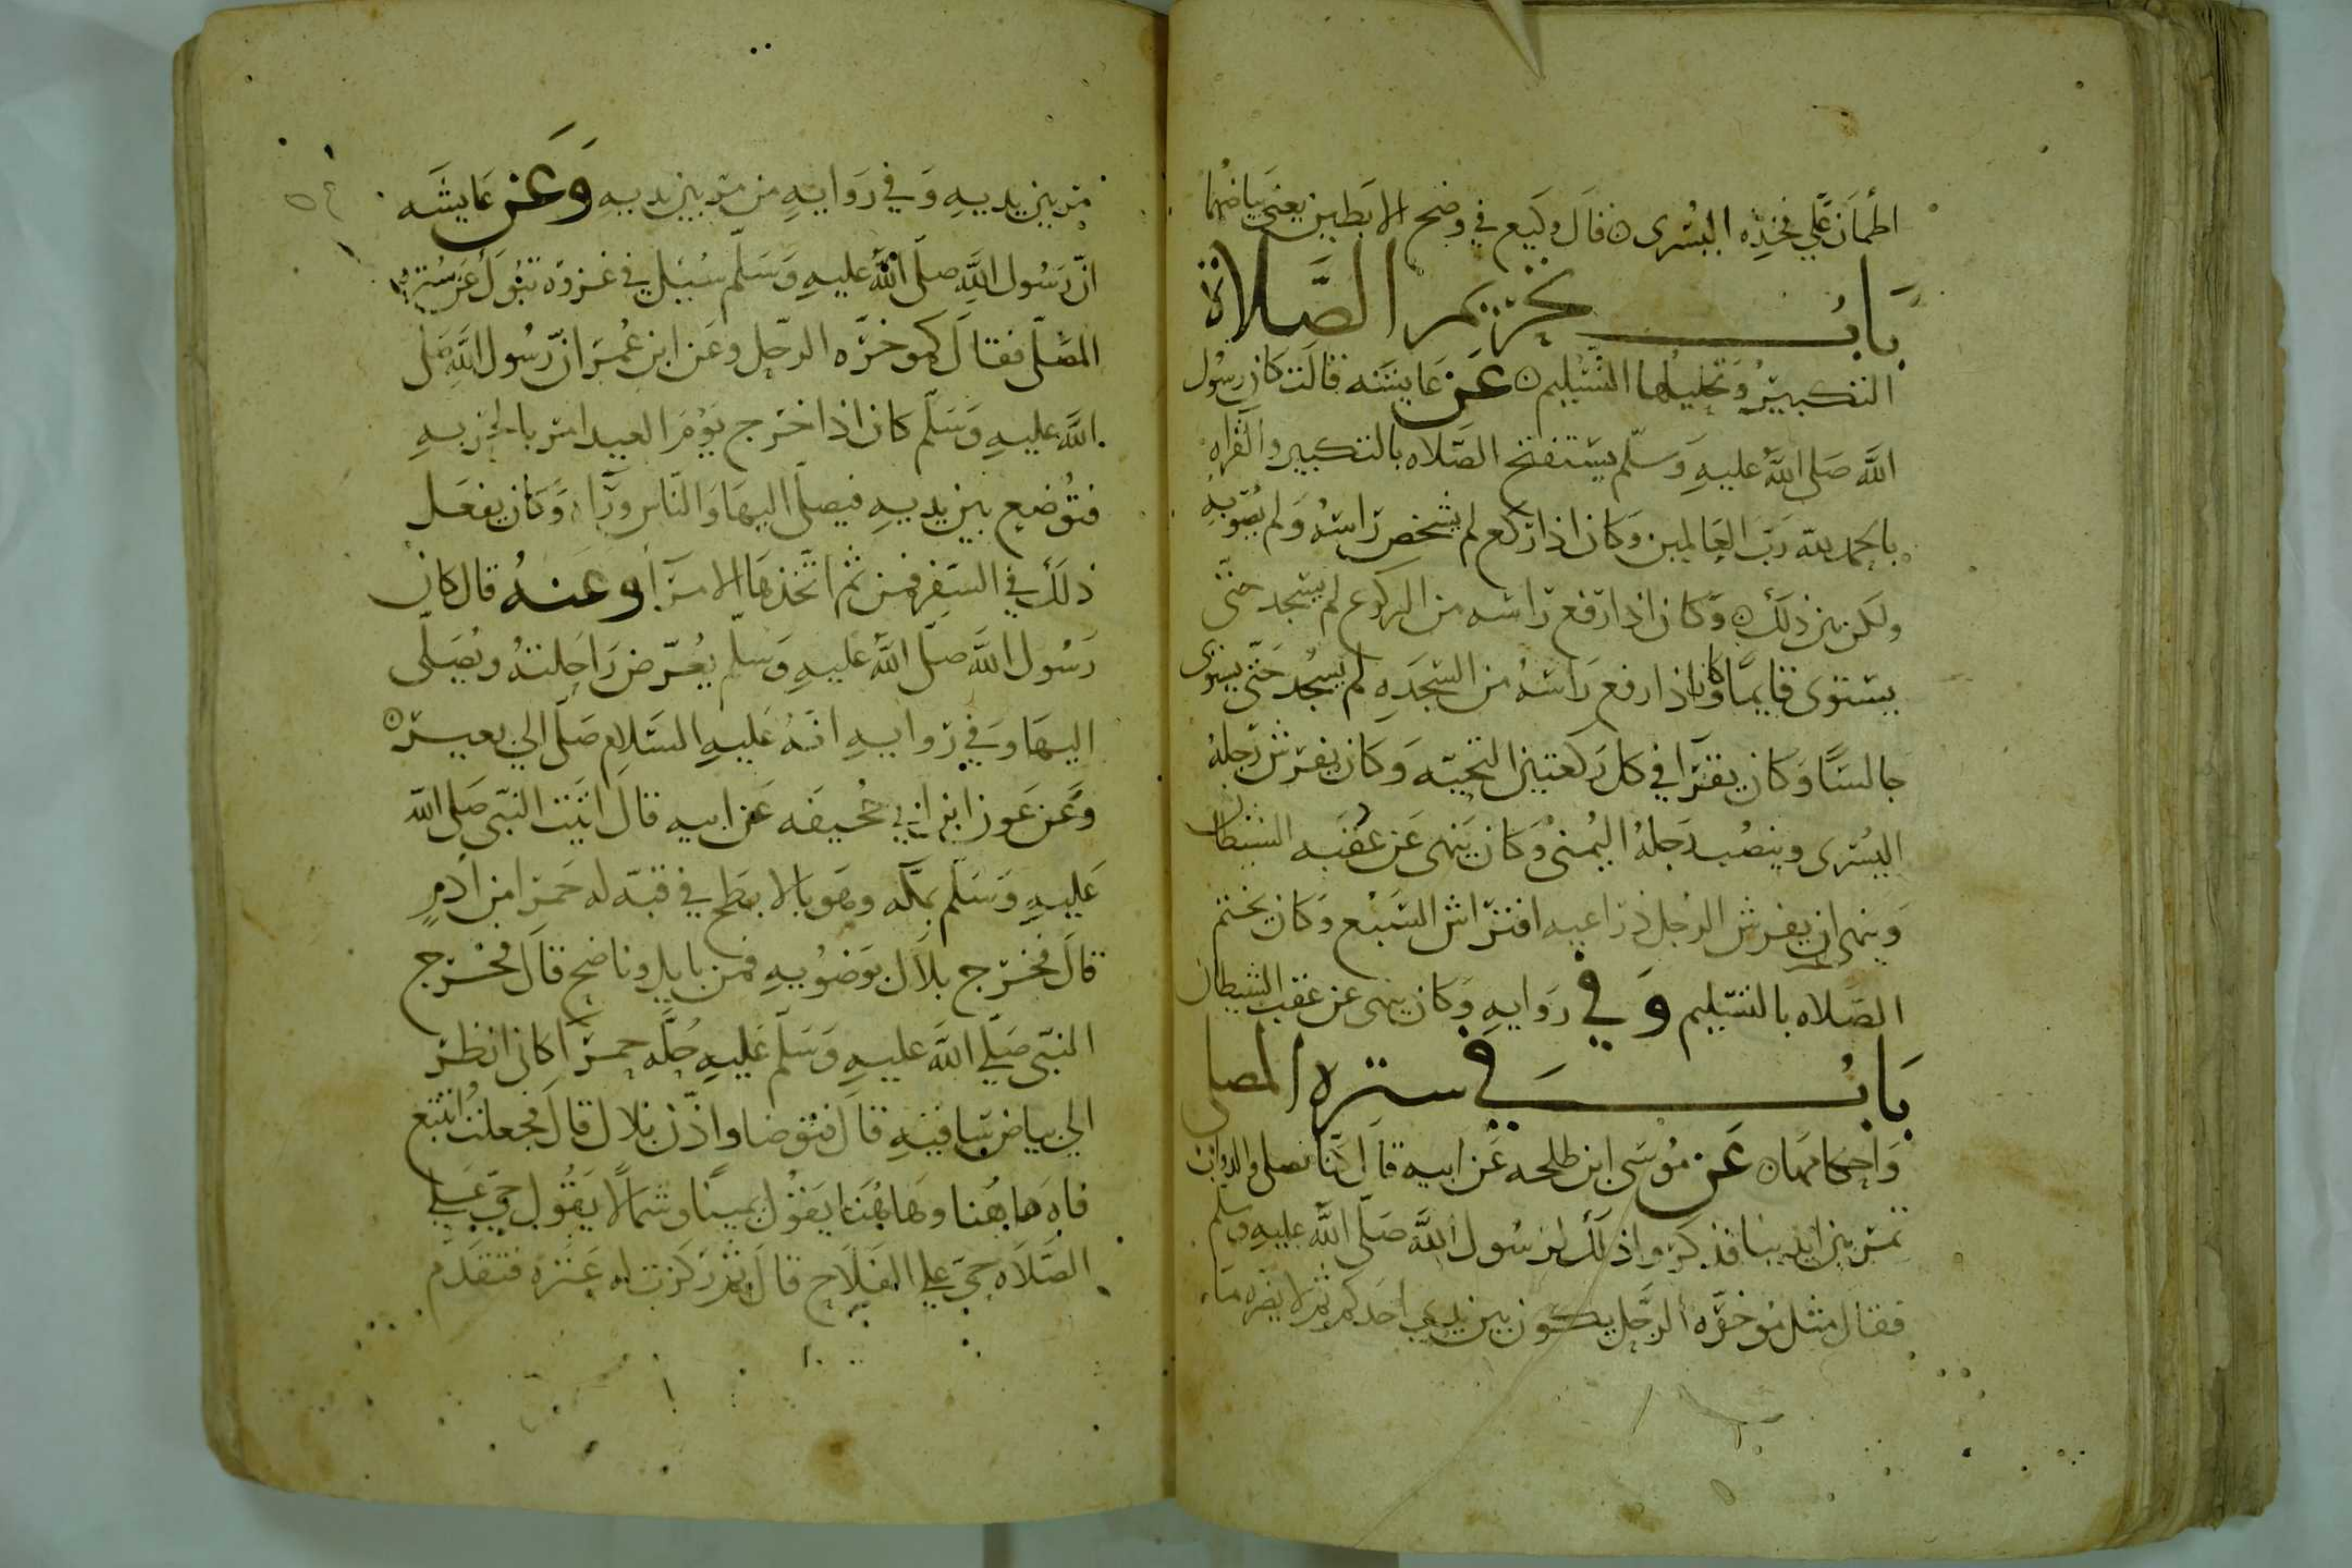 اطمأن على فخذه اليسرى ه قال وكيع في وضح الابطين يعني بياضهما
باب تحريم الصلاة
التكبير وتحليلها التسليم ه عن عايشه قالت كان رسول
الله صلى الله عليه وسلم يستفتح الصلاه بالتكبير والقراه
بالحمد لله رب العالمين وكان اذا ركع لم يشخص راسه ولم يصوبه
ولكن بين ذلك ه وكان اذا رفع راسه من الركوع لم يسجد حتى
يستوى قايما وكان اذا رفع راسه من السجده لم يسجد حتى يستوى
جالسا وكان يقرا في كل ركعتين التحيته وكان يفرش رجله
اليسرى وينصب رجله اليمنى وكان ينهى عن عقبه الشيطان
وينهى ان يفرش الرجل ذراعيه افتراش السبع وكان يختم
الصلاه بالتسليم وفي روايه وكان ينهى عن عقب الشيطان
باب في ستره المصلي
واحكامها ه عن موسى ابن طلحه عن ابيه قال كنا نصلي والدواب
تمر بين ايدينا فذكروا ذلك لرسول الله صلى الله عليه وسلم
فقال مثل موخره الرحل يكون بين يدي احدكم ثم لا يضره ما
مر بين يديه وفي روايه من مر بين يديه وعن عايشه
ان رسول الله صلى الله عليه وسلم سيل في غزوه تبوك عن ستره
المصلى فقال كموخره الرحل وعن ابن عمر ان رسول الله صلى
الله عليه وسلم كان اذا خرج يوم العيد امر بالحربه
فتوضع بين يديه فيصلى اليها والناس ورآه وكان يفعل
ذلك في السفر فمن ثم اتخذها الامرآ وعنه قال كان
رسول الله صلى الله عليه وسلم يعرض راحلته ويصلى
اليها وفي روايه انه عليه السلام صلى الى بعير ه
وعن عون ابن ابي جحيفه عن ابيه قال اتيت النبى صلى الله
عليه وسلم بمكه وهو بالابطح في قبه له حمرا من ادم
قال فخرج بلال بوضويه فمن نايل وناضح قال فخرج
النبى صلى الله عليه وسلم عليه حله حمرآ كانى انظر
الى بياض ساقيه قال فتوضا واذن بلال قال فجعلت اتتبع
فاه هاهنا وهاهنا يقول يمينا وشمالا يقول حي على
الصلاه حي على الفلاح قال ثم ركزت له عنزه فتقدم